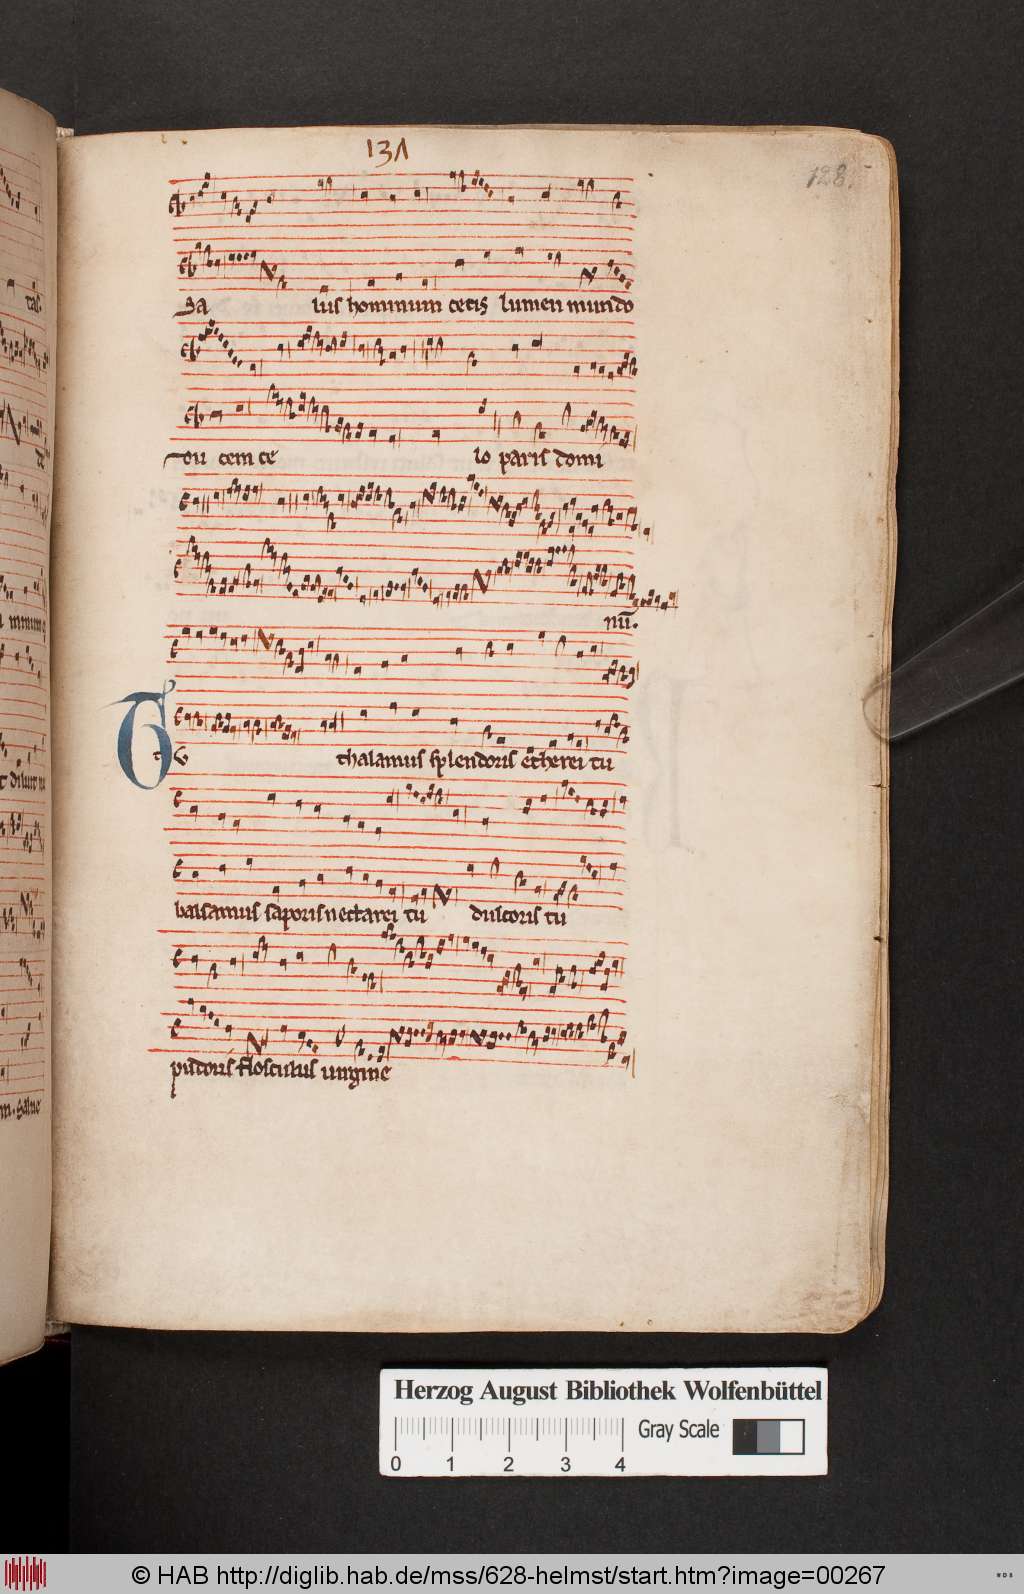 131
128.
Salus hominum cecis lumen mundo
dou cem ce lo paris domi
nū.
Tu thalamus splendoris etherei tu
balsamus saporis nectarei tu dulcoris tu
pudoris flosculus uirgine
tas.
Herzog August Bibliothek Wolfenbüttel
Gray Scale
0 1 2 3 4
© HAB http://diglib.hab.de/mss/628-helmst/start.htm?image=00267